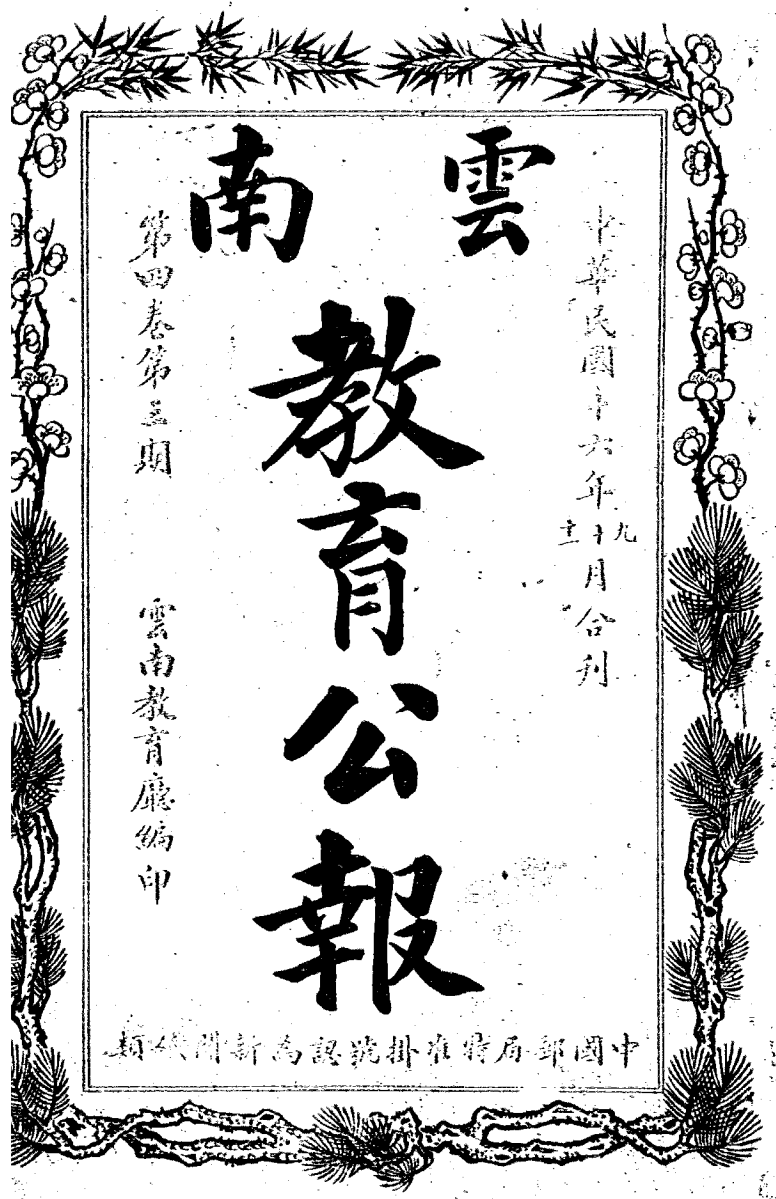 雲南
教育公報
中華民國十六年九十十一月合刊
第四卷第三期
雲南教育廳編印
中國郵局特准掛號認為新聞紙類